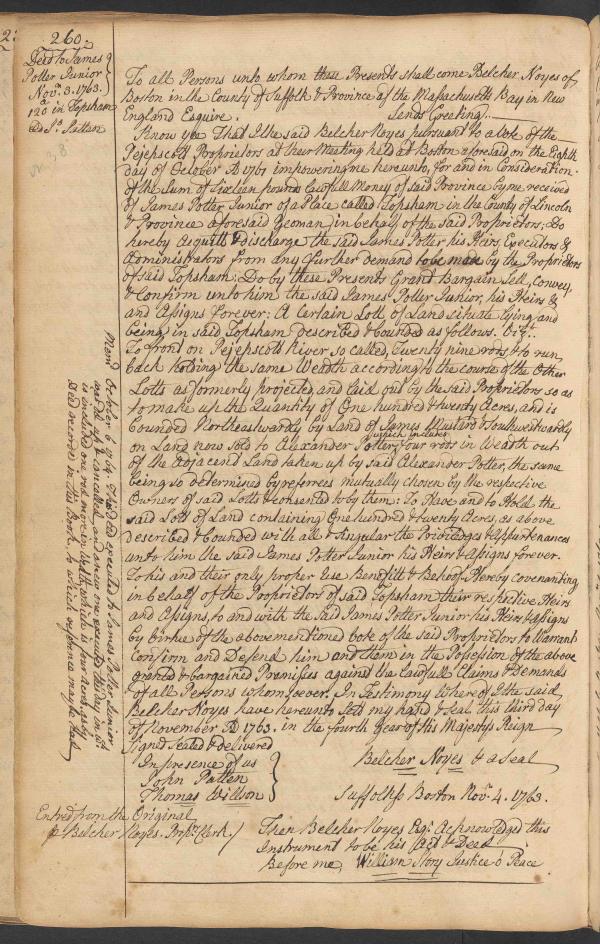 260.
Deed to James
Potter Junior
Novr. 3. 1763.
120a in Topsham
To all Persons unto whom these Presents shall come Belcher Noyes of
Boston in the County of Suffolk & Province of the Massachusetts Bay in New
England Esquire. Sends Greeting.
Know ye That I the said Belcher Noyes pursuant to a Vote of the
Pejepscott Proprietors at their Meeting held at Boston aforesaid on the Eighth
day of October AD 1761 impowering me hereunto, for and in Consideration
of the Sum of Sixteen pounds lawfull Money of said Province by me received
of James Potter Junior of a Place called Topsham in the County of Lincoln
& Province aforesaid Yeoman, in behalf of the said Proprietors; Do
hereby acquitt & discharge the said James Potter his Heirs, Executors &
Administrators from any further Demand to be made by the Proprietors
of said Topsham; Do by these Presents Grant Bargain Sell, Convey,
& Confirm unto him the said James Potter Junior, his Heirs &
and Assigns forever: A Certain Lott of Land situate lying and
being in said Topsham described & bounded as follows. Vizt.
To front on Pejepscott River so called, Twenty nine rods & to run
back holding the same Weadth according to the course of the Other
Lotts as formerly projected, and laid out by the said Proprietors so as
to make up the Quantity of One hundred & twenty Acres, and is
bounded Northeastwardly by Land of James Mustard & Southwestwardly
on Land now sold to Alexander Potter, which includes Four rods in Weadth out
of the Adjacend Land taken up by said Alexander Potter, the same
being so determined by referrees mutually chosen by the respective
Owners of said Lotts & consented to by them: To Have and to Hold the
said Lott of Land containing One hundred & twenty Acres, as above
described & bounded with all & singular the Priviledges & Appurtenances
unto him the said James Potter Junior his Heirs & Assigns forever.
To his and their only proper Use Benefitt & Behoof, Hereby covenanting
in behalf of the Proprietors of said Topsham their respective Heirs
and Assigns, to and with the said James Potter Junior his Heirs & Assigns
by Virtue of the abovementioned Vote of the said Proprietors to Warrant
Confirm and Defend him and them in the Possession of the above
granted & bargained Premisses against the lawfull Claims & Demands
of all Persons whomsoever. In Testimony whereof I the said
Belcher Noyes have hereunto Sett my hand & Seal this third day
of November AD 1763. in the fourth Year of His Majestys Reign
Signed Sealed & delivered
In presence of us
John Patten
Thomas Willson
Belcher Noyes & a Seal
Suffolk ss Boston Novr. 4. 1763.
Then Belcher Noyes Esqr. Acknowledged this
Instrument to be his Act & Deed
Before me, William Story Justice o' Peace
Entred from the Original
p Belcher Noyes. Propr. Clerk.
Memo October 6 1764. This Deed executed to James Potter Junior
is included one rod more in Weadth which is four acres as by
Deed recorded in this Book, to which reference may be had